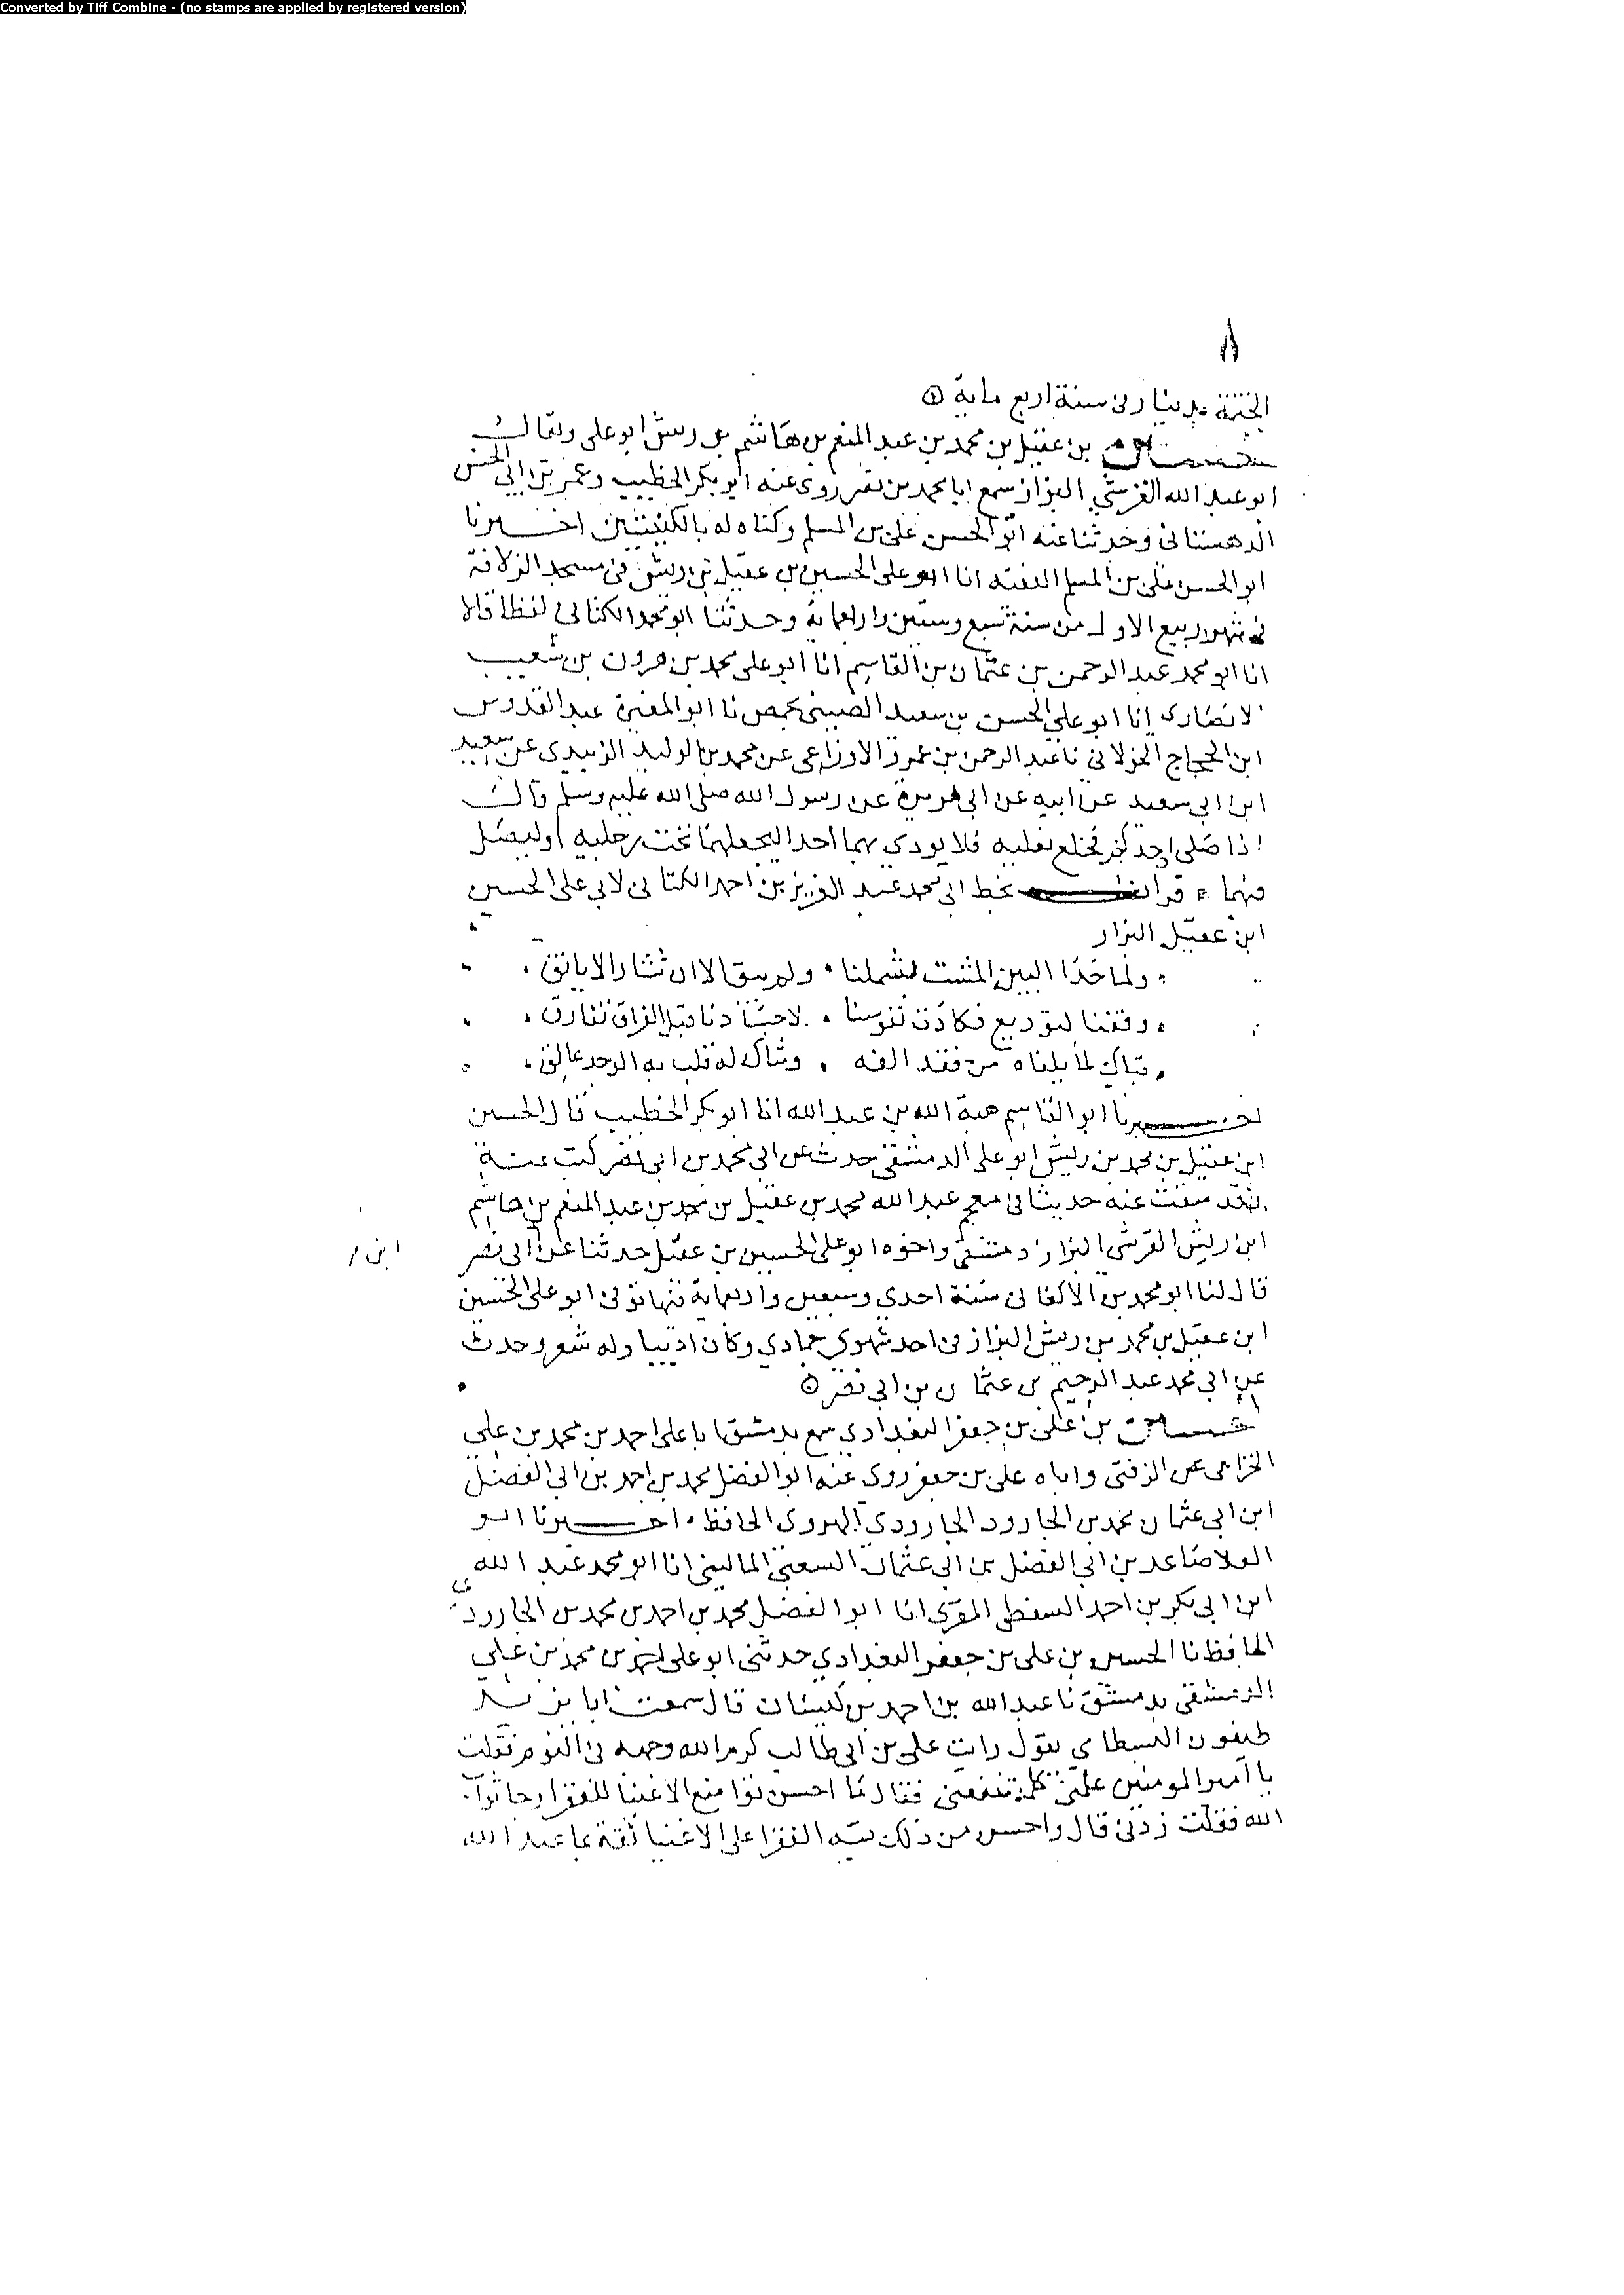 Converted by Tiff Combine - (no stamps are applied by registered version)
بدينار في سنة اربع ماية
بن عقيل بن محمد بن عبد المنعم بن هاشم بن ريش ابو علي ويقال
ابو عبد الله القرشي البزاز سمع ابا محمد بن نصر روى عنه ابو بكر الخطيب وعمر بن ابي الحسن
الدهستاني وحدثنا عنه ابو الحسن علي بن المسلم وكناه له بالكنيتين اخبرنا
ابو الحسن علي بن المسلم الفقيه انا ابو علي الحسين بن عقيل بن ريش في مسجد الزلاقة
في شهر ربيع الاول من سنة سبع وستين واربعماية وحدثنا ابو محمد الكتاني لفظا قالا
انا ابو محمد عبد الرحمن بن عثمان بن القاسم انا ابو علي محمد بن هرون بن شعيب
الانصاري انا ابو علي الحسن بن سعيد بحمص نا ابو المغيرة عبد القدوس
ابن الحجاج الخولاني نا عبد الرحمن بن عمرو الاوزاعي عن محمد بن الوليد الزبيدي عن سعيد
ابن ابي سعيد عن ابيه عن ابي هريرة عن رسول الله صلى الله عليه وسلم قال
اذا صلى احدكم فخلع نعليه فلا يوذي بهما احدا ليجعلهما تحت رجليه او ليصل
فيهما قرات بخط ابي محمد عبد العزيز بن احمد الكتاني لابي علي الحسين
ابن عقيل البزاز
ولما حدا البين المشت بشملنا ولم يبق الا ان تثار الايانق
وقفنا لتوديع فكادت نفوسنا لاجسادنا قبل الفراق تفارق
فباك لما يلقاه من فقد الفه وشاك له قلب به الوجد عالق
اخبرنا ابو القاسم هبة الله بن عبد الله انا ابو بكر الخطيب قال الحسين
ابن عقيل بن محمد بن ريش ابو علي الدمشقي حدث عن ابي محمد بن ابي نصر كتبت عنه
عنه حديثا في معجم عبد الله محمد بن عقيل بن محمد بن عبد المنعم بن هاشم
ابن ريش القرشي البزاز دمشقي واخوه ابو علي الحسين بن عقيل حدثنا عن ابي نصر
ابن
قال لنا ابو محمد بن الاكفاني سنة احدى وسبعين واربعماية فيها توفي ابو علي الحسين
ابن عقيل بن محمد بن ريش البزاز في احد شهوري جمادي وكان اديبا وله شعر وحدث
عن ابي محمد عبد الرحيم بن عثمان بن ابي نصر
بن علي بن جعفر البغدادي سمع بدمشق ابا علي احمد بن محمد بن علي
الخزاعي واباه علي بن جعفر روى عنه ابو الفضل محمد بن احمد بن ابي الفضل
ابن ابي عثمان محمد بن الجارود الجارودي الهروي الحافظ اخبرنا ابو
العلا صاعد بن ابي الفضل بن ابي عثمان الماليني انا ابو محمد عبد الله
ابن ابي بكر بن احمد السقطي المقري انا ابو الفضل محمد بن احمد بن محمد بن الجارودي
الحافظ نا الحسين بن علي بن جعفر البغدادي حدثني ابو علي احمد بن محمد بن علي
الدمشقي بدمشق نا عبد الله بن احمد بن قال سمعت ابا يزيد
طيفور البسطامي يقول رايت علي بن ابي طالب كرم الله وجهه في النوم فقلت
يا امير المومنين علمني كلمة تنفعني فقال ما احسن تواضع الاغنيا للفقرا رجا ثواب
الله فقلت زدني قال واحسن من ذلك تيه الفقرا على الاغنيا ثقة بما عند الله